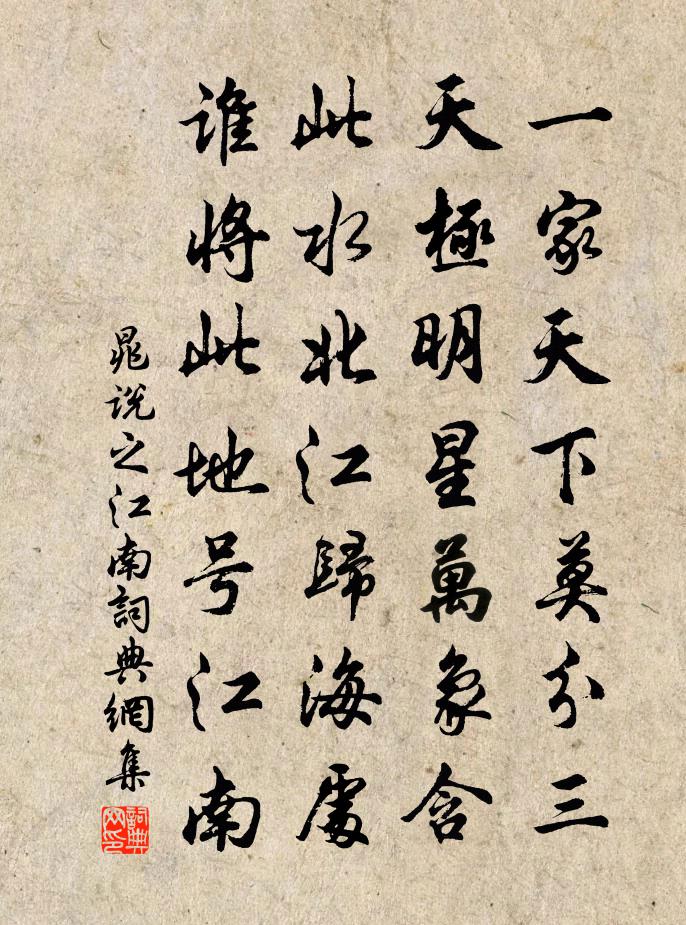 一家天下莫分三
天極明星萬象含
此水北江歸海處
誰將此地号江南
晁說之江南詞典網集
詞典网印